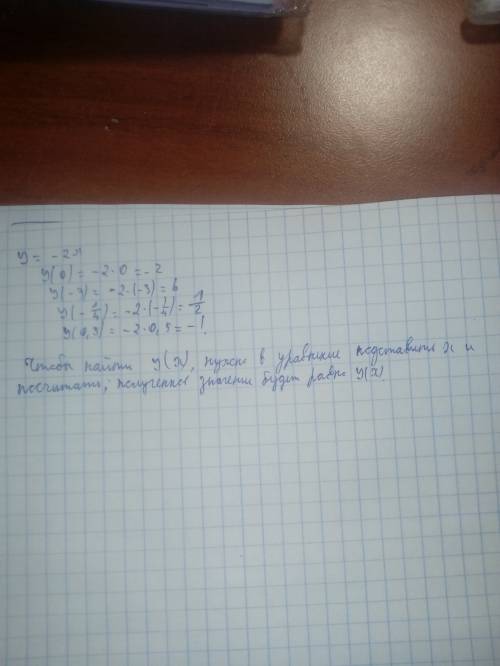 y = -2x
y(0) = -2·0 = -2
y(-3) = -2·(-3) = 6
y(-1/4) = -2·(-1/4) = 1/2
y(0,5) = -2·0,5 = -1
Чтобы найти y(x), нужно в уравнение подставить x и
посчитать, полученное значение будет равно y(x).